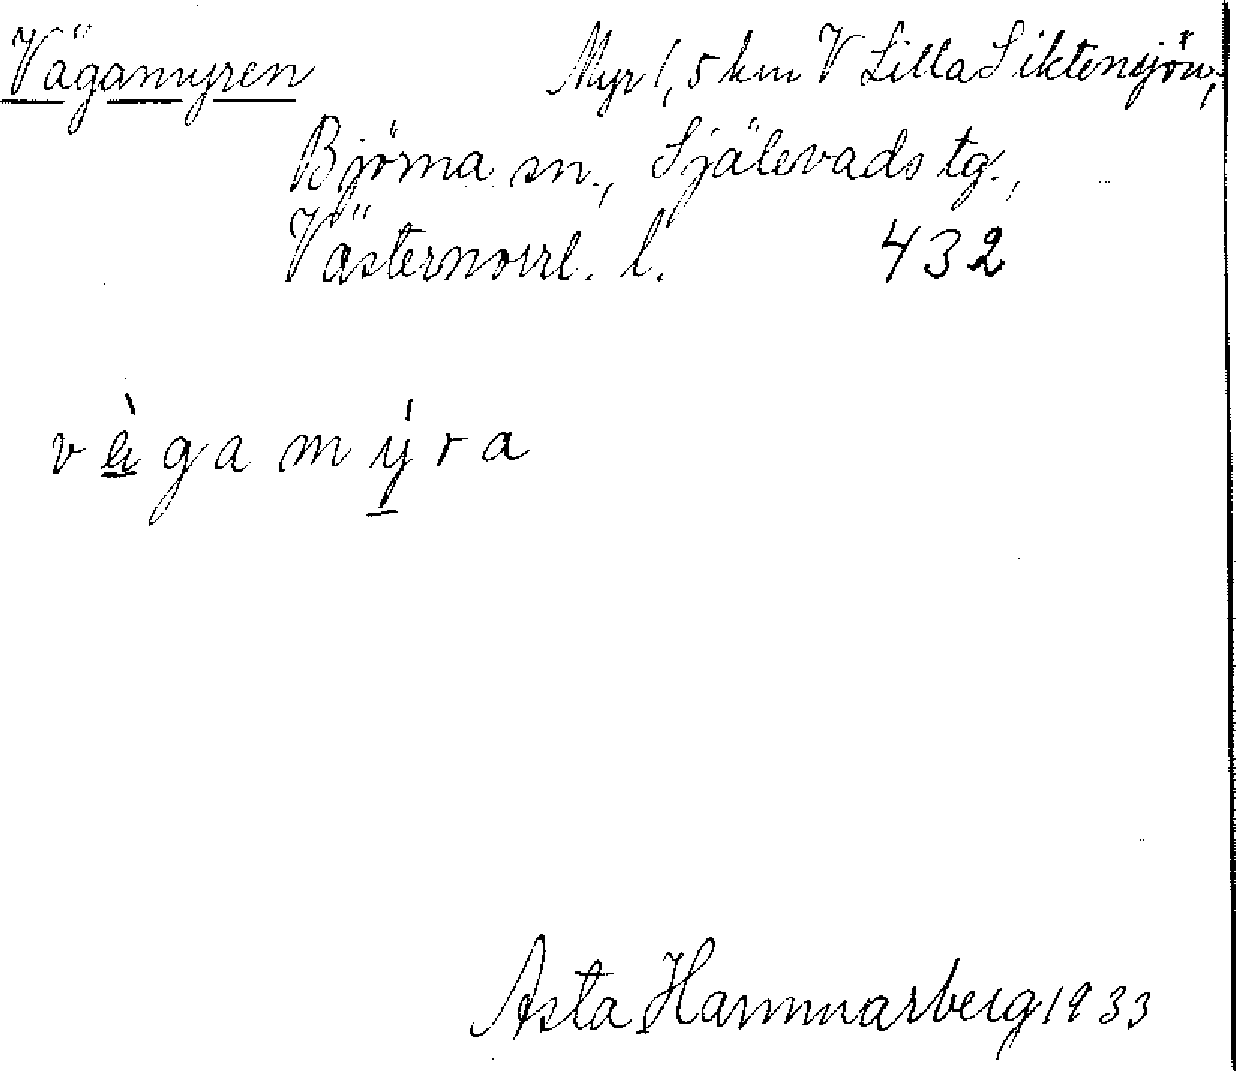 Vägamyren Myr 1,5 km V Lilla Siktensjön,
Björna sn., Själevads tg.,
Västernorrl. l. 432
vä̀gamýra
Asta Hammarberg 1933